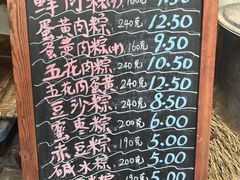 鲜肉粽(中) 160克 7.50
蛋黄肉粽 240克 12.50
蛋黄肉粽(中) 160克 9.50
五花肉粽 240克 10.50
五花肉蛋黄 240克 12.50
豆沙粽 240克 8.50
蜜枣粽 200克 6.00
赤豆粽 190克 5.00
碱水粽 200克 5.00
粽 5.00